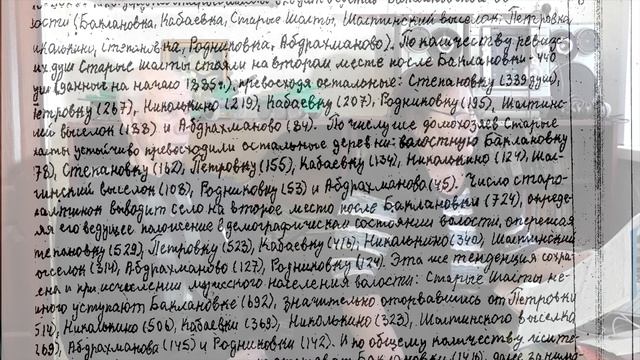 волости (Баклановка, Кабаевка, Старые Шалты, Шалтинский выселок, Петровка
Николькино, Степановка, Родниковка, Абдрахманово). По количеству ревизс-
их душ Старые Шалты стали на втором месте после Баклановки - 440
душ (данные на начало 1835 г.), превосходя остальные: Степановку (339 душ),
етровку (267), Николькино (219), Кабаевку (207), Родниковку (195), Шалтинс-
ий выселок (138) и Абдрахманово (84). По числу же домохозяев Старые
Шалты устойчиво превосходили остальные деревни: волостную Баклановку
78), Степановку (162), Петровку (155), Кабаевку (134), Николькино (124), Шал-
тинский выселок (108), Родниковку (53) и Абдрахманово (45). Число старо-
шалтинок выводит село на второе место после Баклановки (724), опреде-
ляя его ведущее положение в демографическом состоянии волости, опережая
тепановку (529), Петровку (523), Кабаевку (416), Николькино (340), Шалтинский
выселок (314), Абдрахманово (127), Родниковку (124). Эта же тенденция сохра-
ена и при исчислении мужского населения волости: Старые Шалты не-
много уступают Баклановке (692), значительно оторвавшись от Петровки
514), Николькино (506), Кабаевки (369), Николькино (323), Шалтинского выселка
269), Абдрахманова (145) и Родниковки (142). И по общему количеству жите-